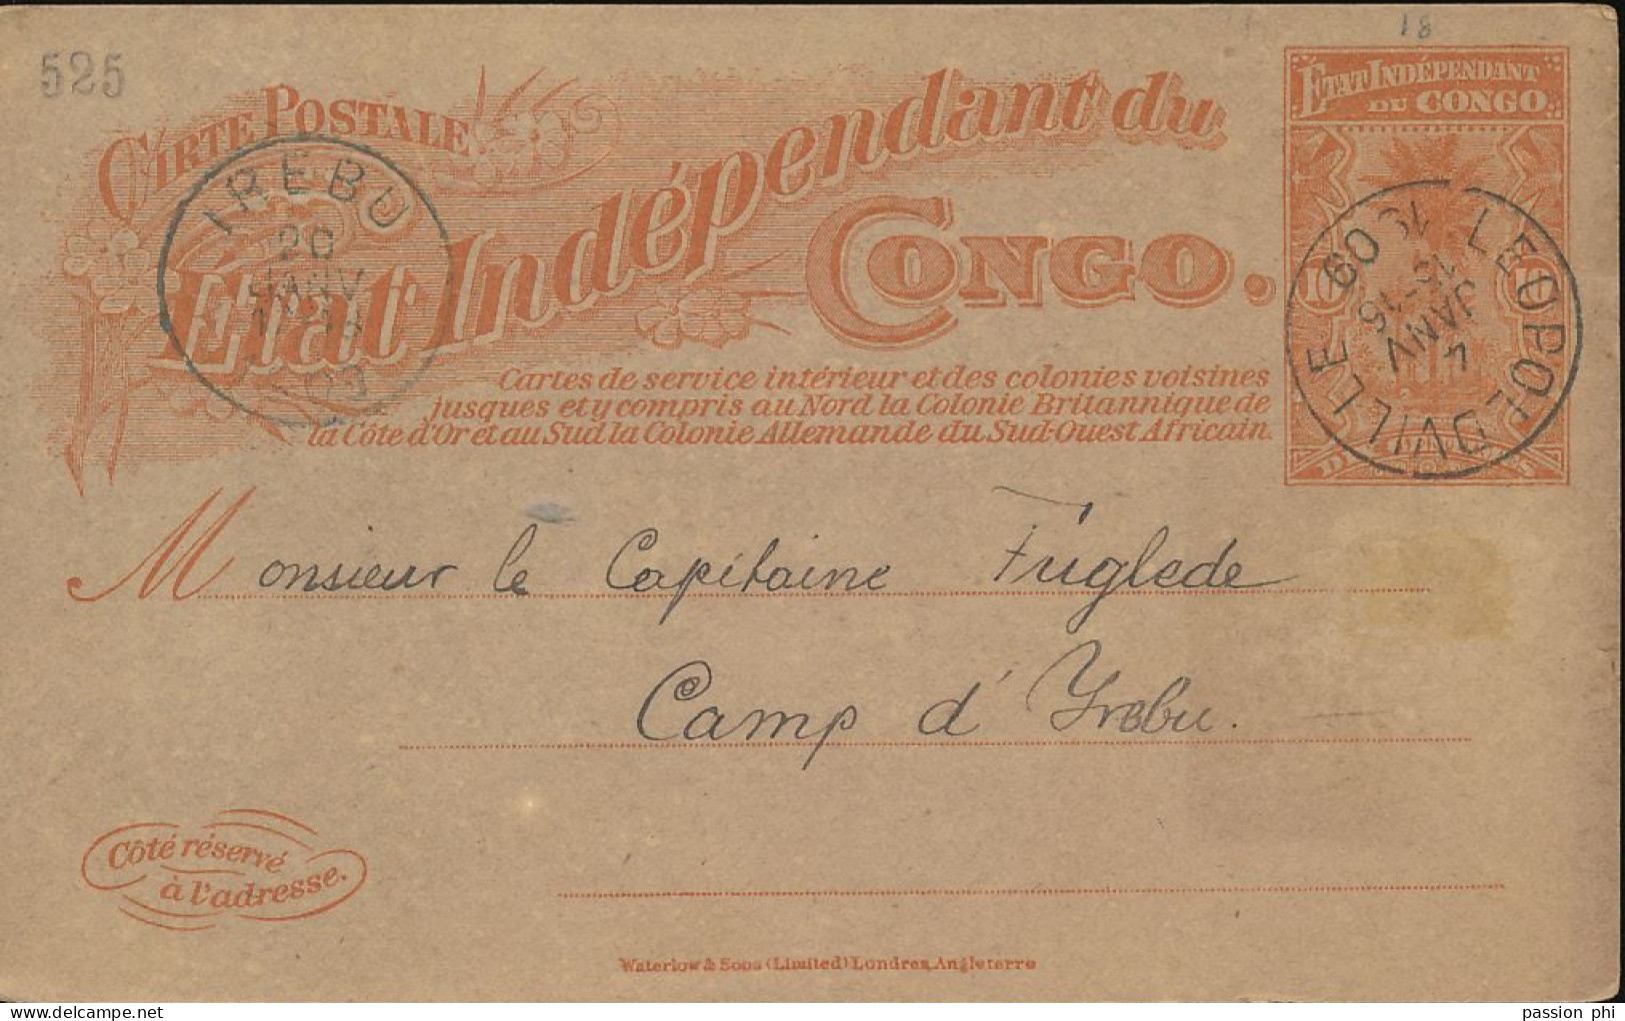 18
525
CARTE POSTALE
État Indépendant du
CONGO.
ÉTAT INDÉPENDANT
DU CONGO.
10 10
IREBU
20
JANV
09
LEOPOLDVILLE
15-16
JANV
4
09
Cartes de service intérieur et des colonies voisines
jusques et y compris au Nord la Colonie Britannique de
la Côte d'Or et au Sud la Colonie Allemande du Sud-Ouest Africain.
Monsieur le Capitaine Fuglede
Camp d'Yrebu.
Côté réservé
à l'adresse.
Waterlow & Sons (Limited) Londres, Angleterre
passion phi